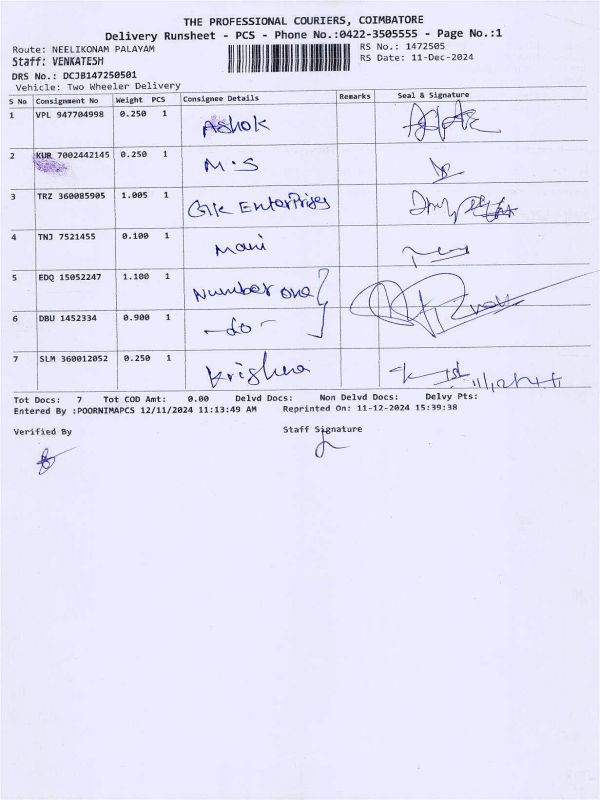 THE PROFESSIONAL COURIERS, COIMBATORE
Delivery Runsheet - PCS - Phone No.:0422-3505555 - Page No.:1
Route: NEELIKONAM PALAYAM
RS No.: 1472505
Staff: VENKATESH
RS Date: 11-Dec-2024
DRS No.: DCJB147250501
Vehicle: Two Wheeler Delivery
S No Consignment No Weight PCS Consignee Details Remarks Seal & Signature
1 VPL 947704998 0.250 1 Ashok
2 KUR 7002442145 0.250 1 M.S
3 TRZ 360085905 1.005 1 GK Enterprises
4 TNJ 7521455 0.100 1 Mani
5 EDQ 15052247 1.100 1 Number one
6 DBU 1452334 0.900 1 -do-
7 SLM 360012052 0.250 1 Krishna
Tot Docs: 7 Tot COD Amt: 0.00 Delvd Docs: Non Delvd Docs: Delvy Pts:
Entered By :POORNIMAPCS 12/11/2024 11:13:49 AM Reprinted On: 11-12-2024 15:39:38
Verified By
Staff Signature